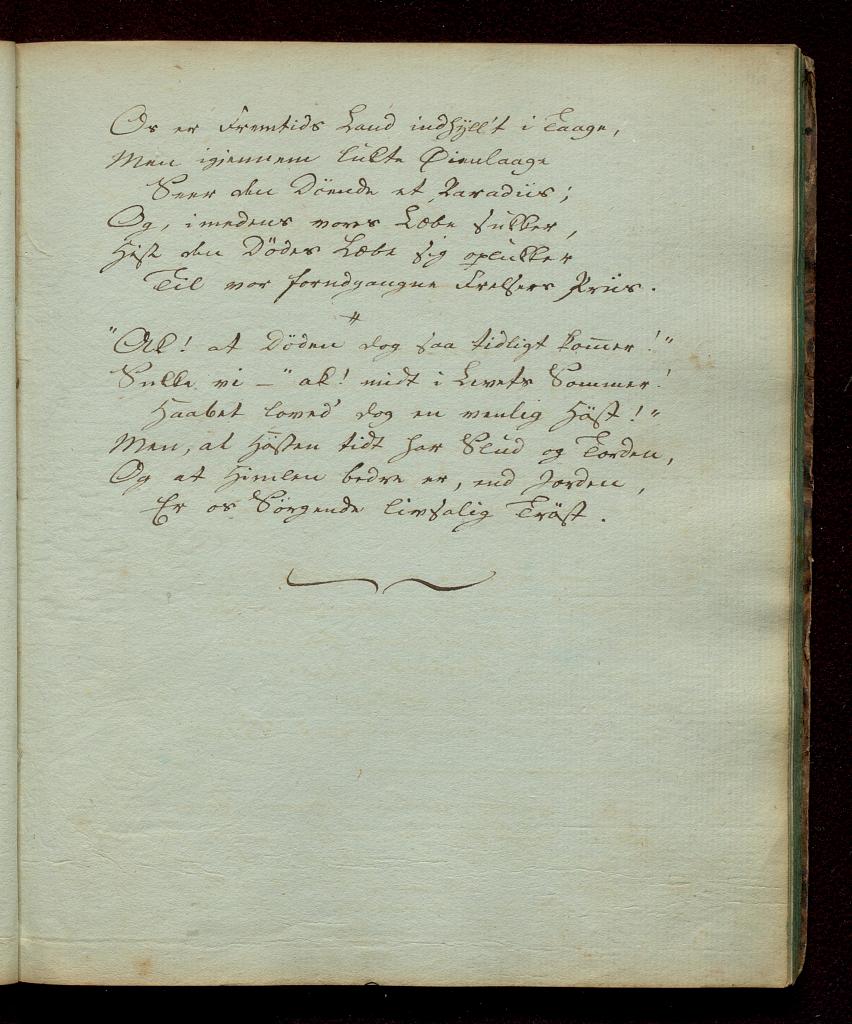 Os er Fremtids Land indhyll't i Taage,
Men igiennem lukte Øienlaage
Seer den Döende et Paradiis;
Og, imedens vores Læbe sukker,
Hist den Dödes Læbe sig oplukker
Til vor forudgangne Frelsers Priis.
#
"Ak! at Döden dog saa tidligt kom̄er!"
Sukke vi – "ak! midt i Livets Sommer!
Haabet loved' dog en venlig Höst!"
Men, at Hösten tidt har Slud og Torden,
Og at Himlen bedre er, end Jorden,
Er os Sörgende livsalig Tröst.